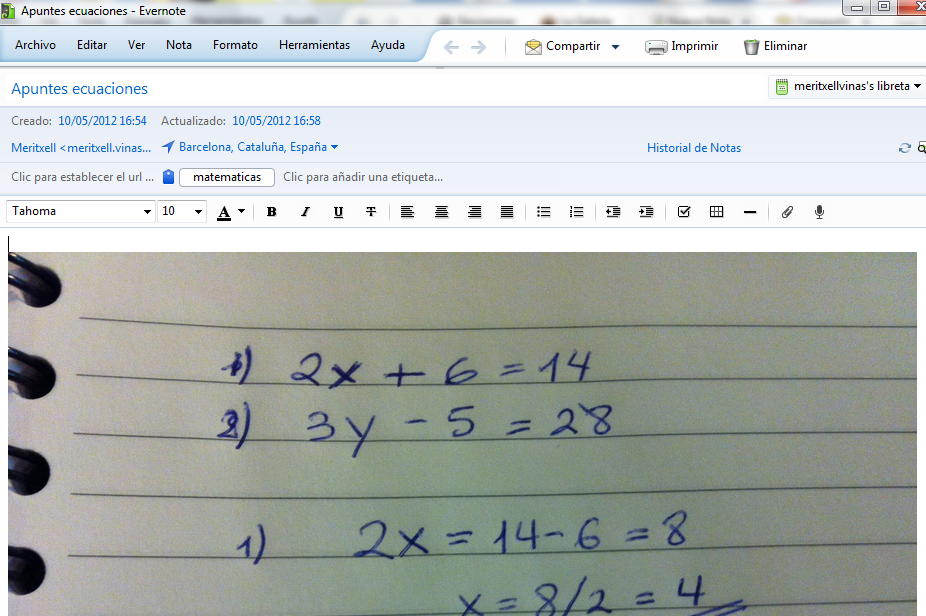 Apuntes ecuaciones - Evernote
Archivo Editar Ver Nota Formato Herramientas Ayuda Compartir Imprimir Eliminar
Apuntes ecuaciones meritxellvinas's libreta
Creado: 10/05/2012 16:54 Actualizado: 10/05/2012 16:58
Meritxell <meritxell.vinas... Barcelona, Cataluña, España Historial de Notas
Clic para establecer el url ... matematicas Clic para añadir una etiqueta...
Tahoma 10 A B I U T
1) 2x + 6 = 14
2) 3y - 5 = 28
1) 2x = 14 - 6 = 8
x = 8/2 = 4